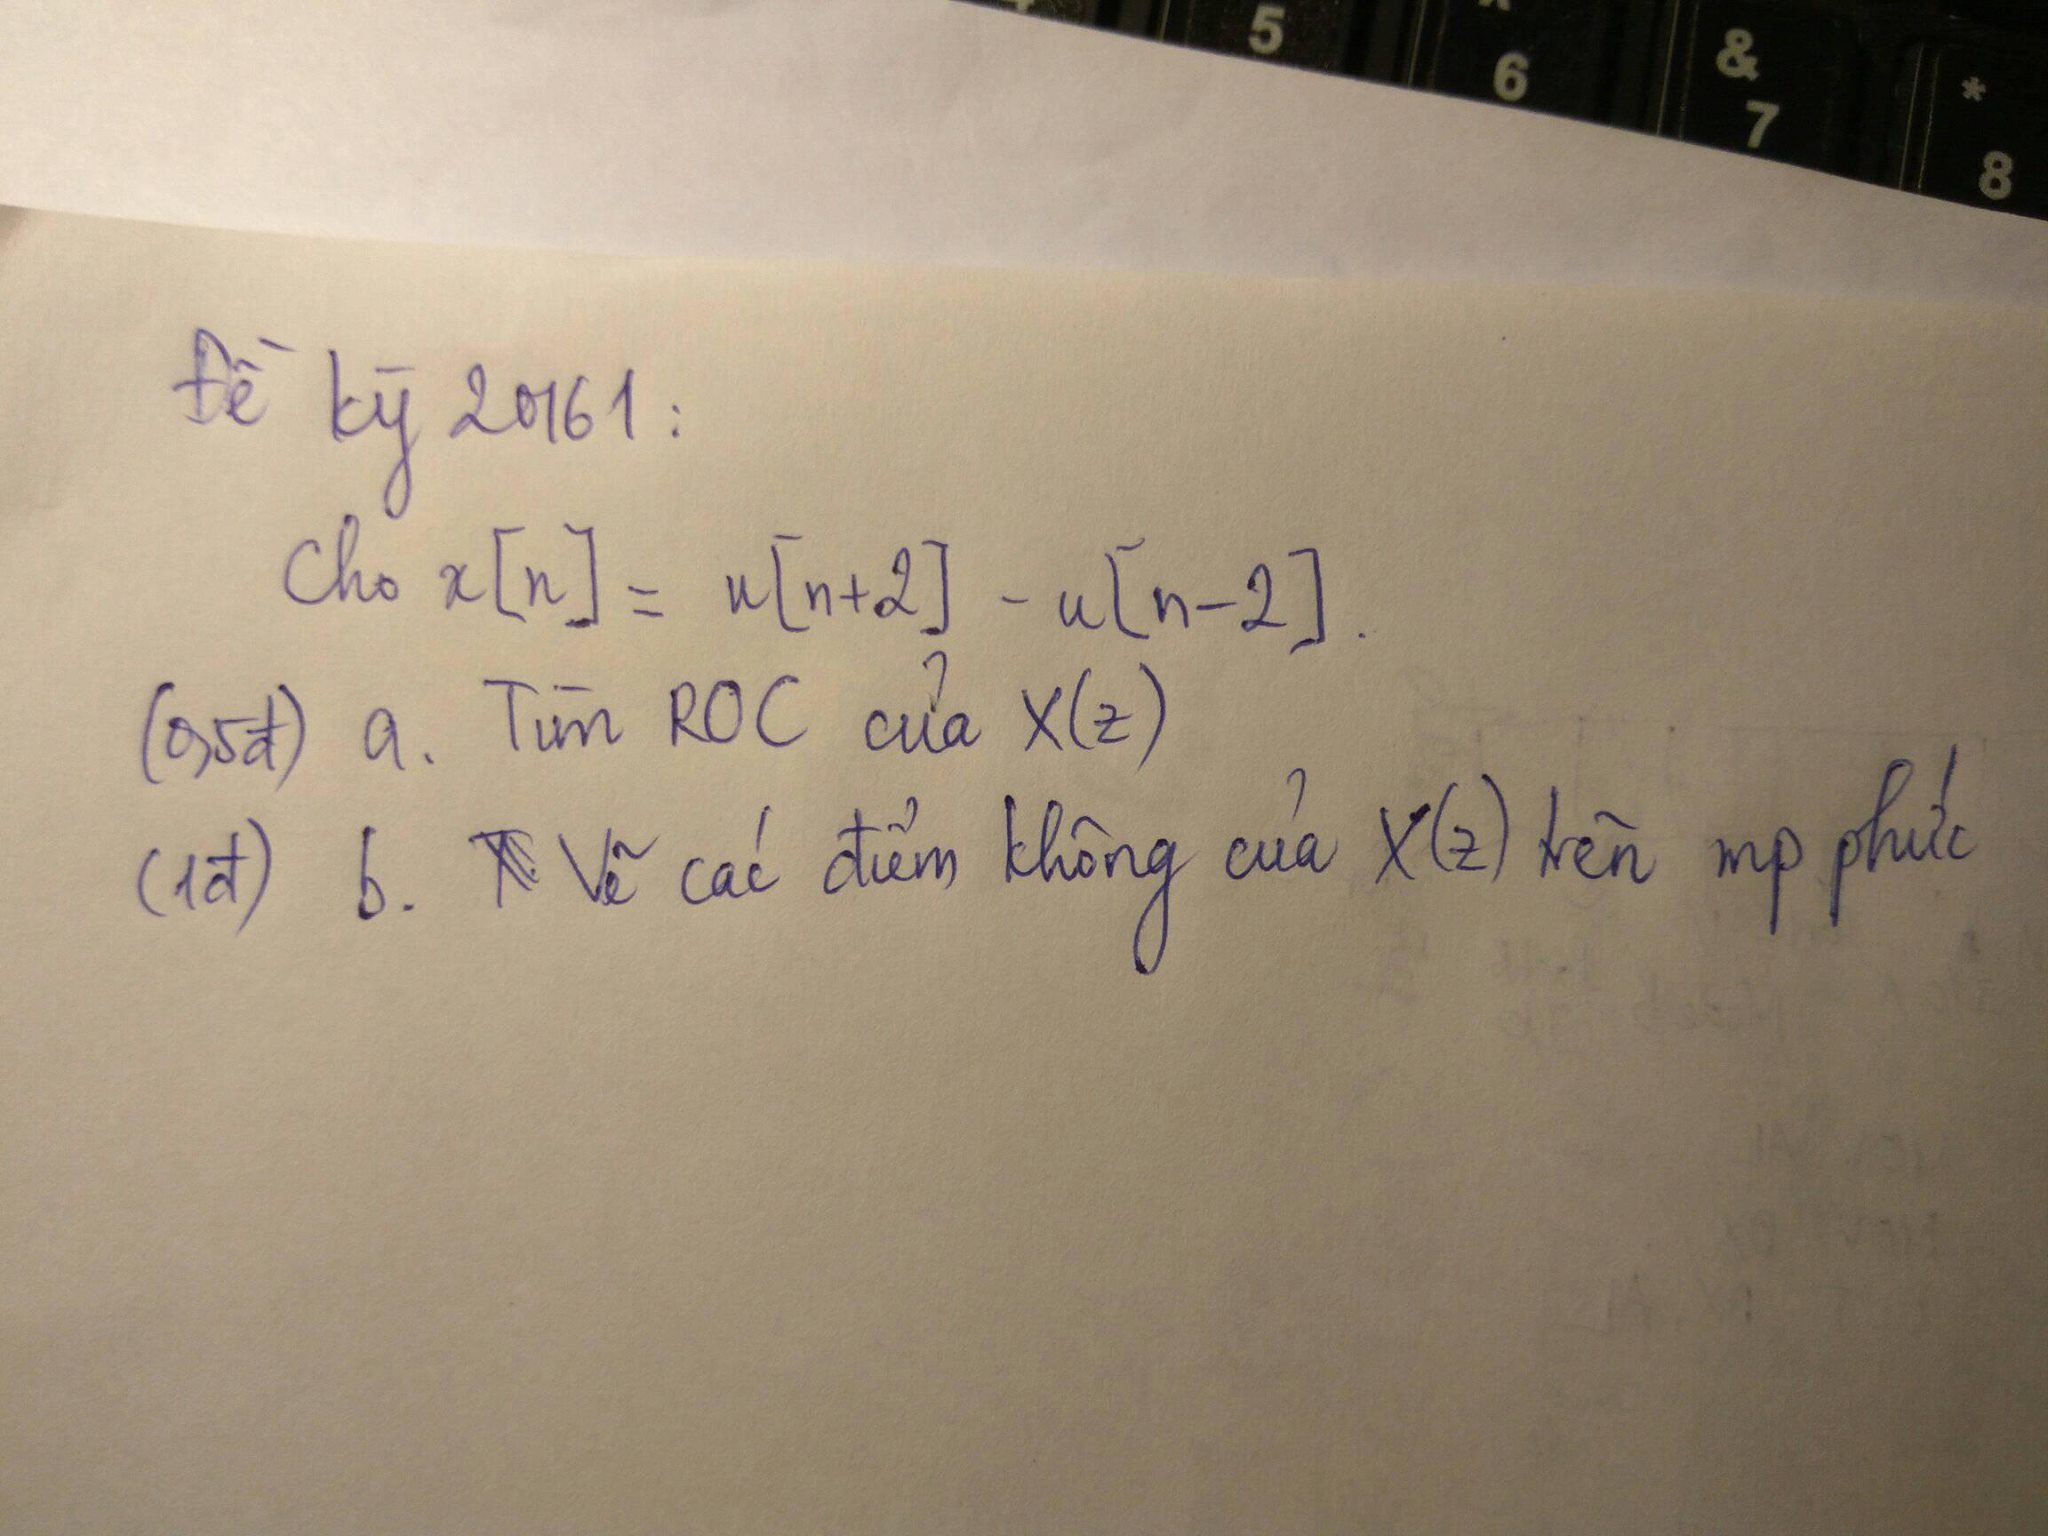 5
6
&
7
*
8
Đề kỳ 20161:
Cho x[n] = u[n+2] - u[n-2].
(0,5đ) a. Tìm ROC của X(z)
(1đ) b. Vẽ các điểm không của X(z) trên mp phức